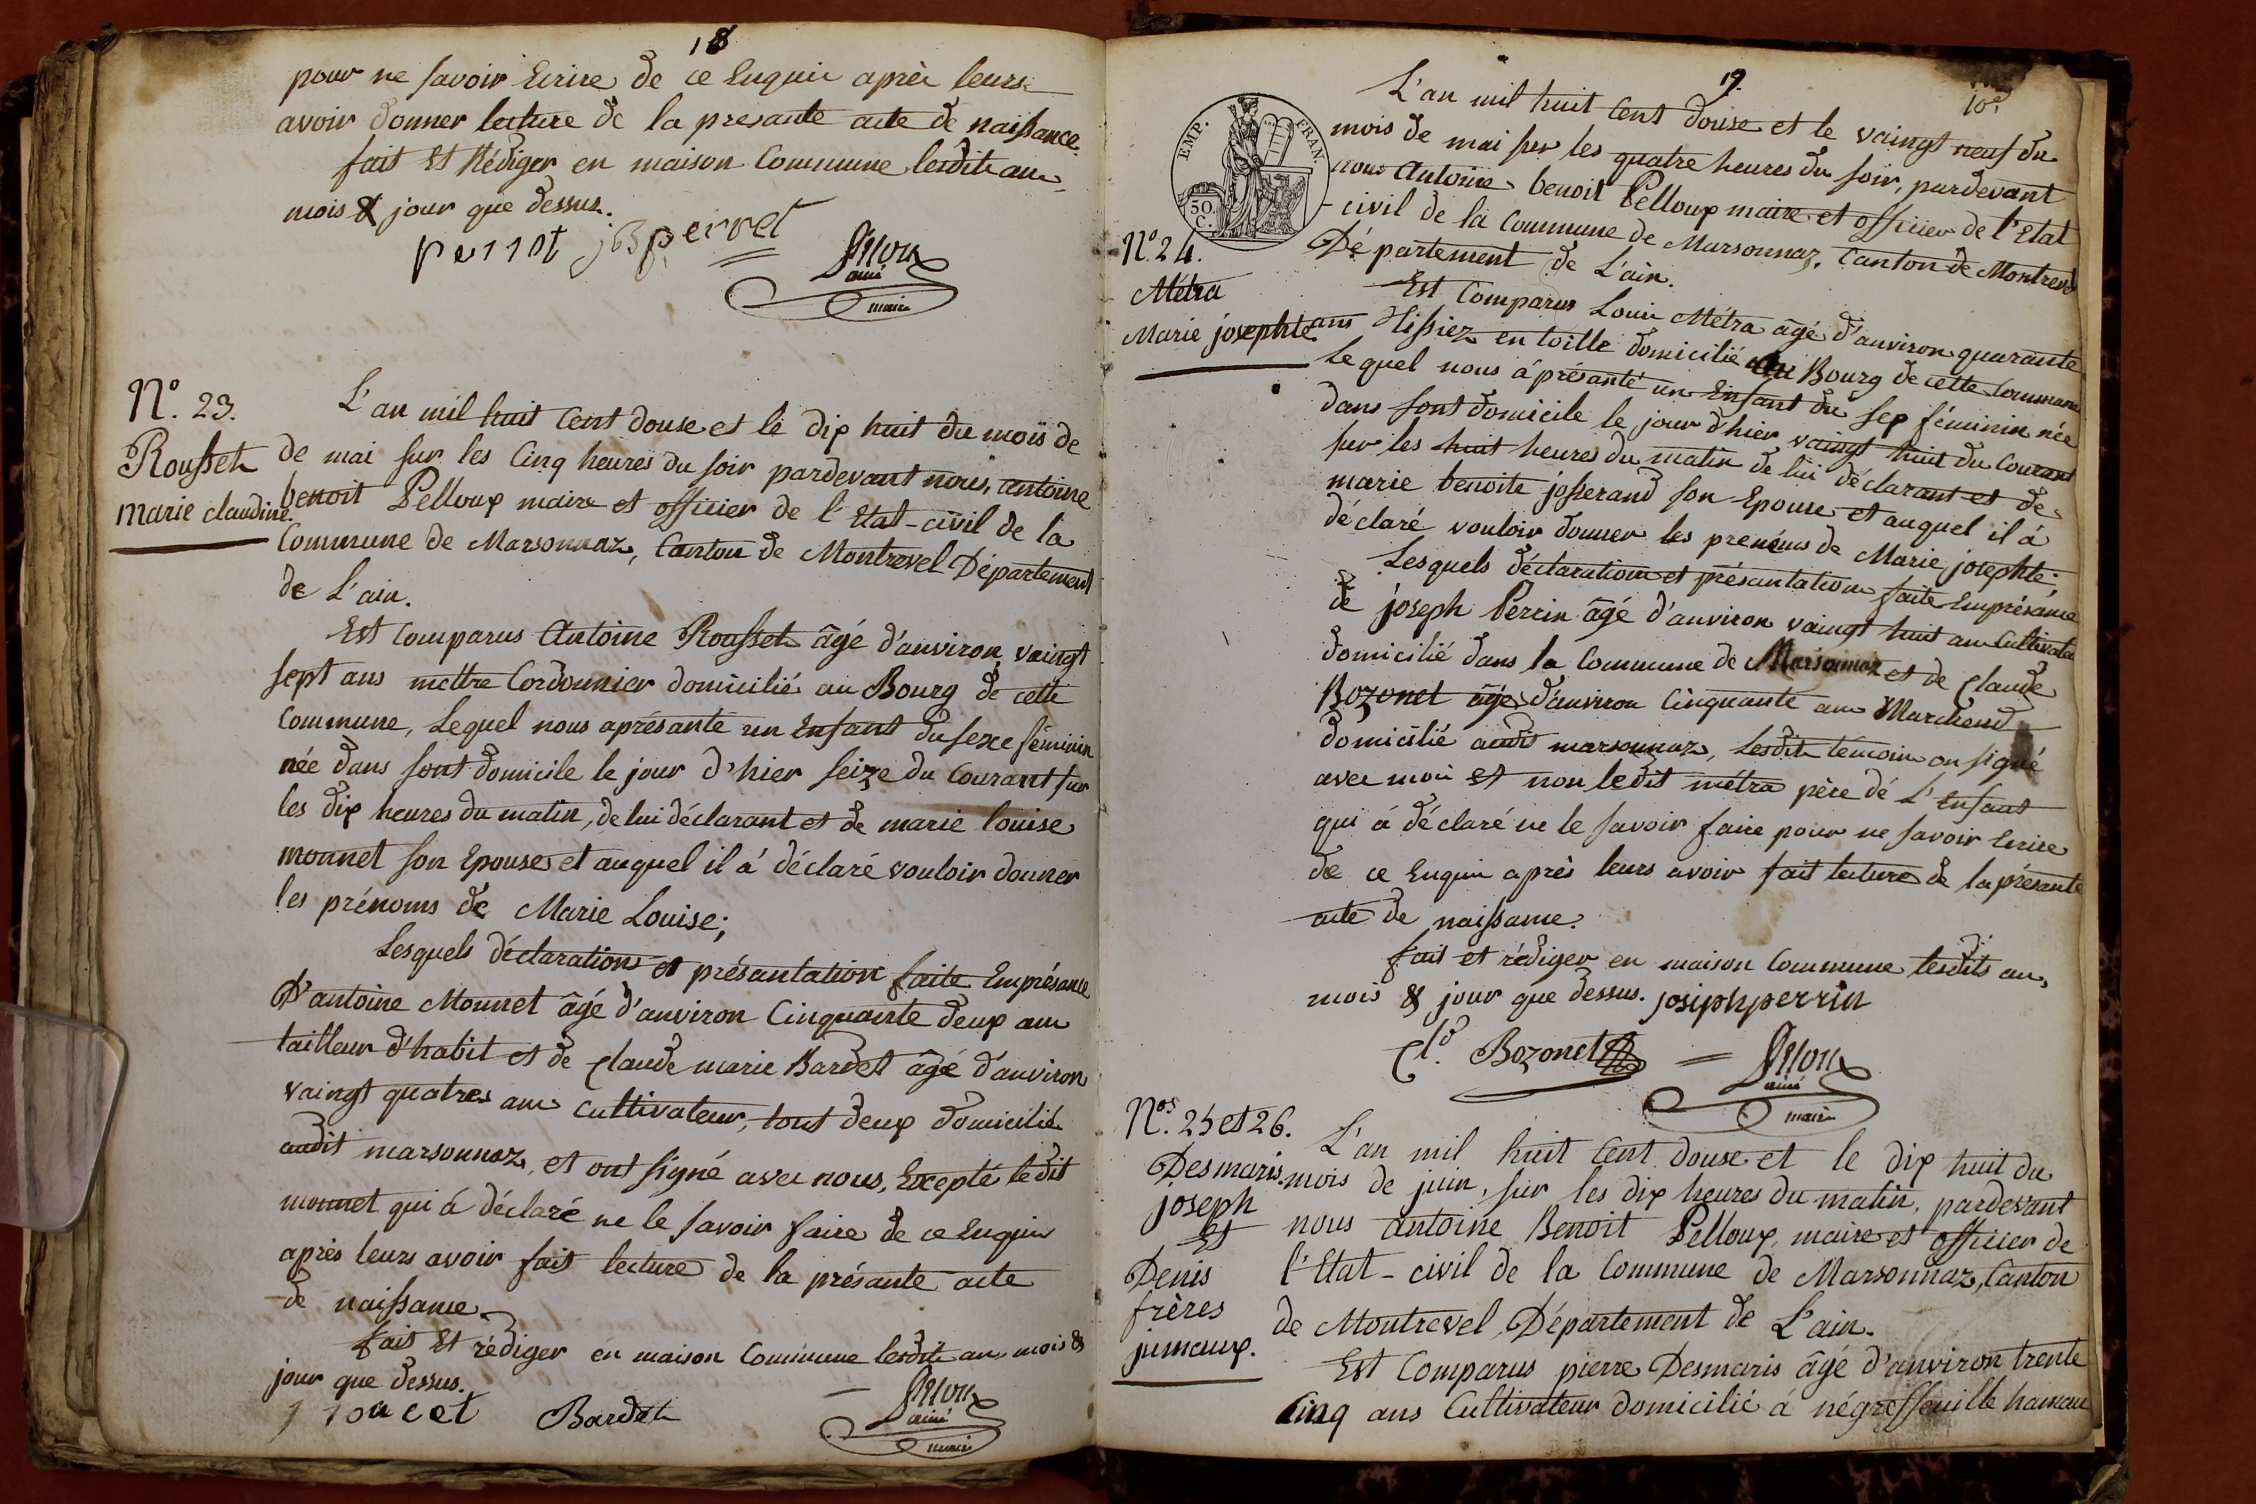 18
pour ne savoir Ecrire de ce Enquir après leurs
avoir donner lecture de la presante acte de naissance.
fait Et Rédiger en maison Commune lesdits an,
mois & jour que dessus.
perrot j B perret
ainé
maire
N.º 23.
Rousset
marie claudine.
L'an mil huit Cent douse et le dix huit du mois de
de mai sur les Cinq heures du soir pardevant nous, antoine
benoit Pelloux maire et officier de l'Etat-civil de la
Commune de Marsonnaz, Canton de Montrevel Département
de L'ain.
Est Comparus Antoine Rousset âgé d'anviron vaingt
sept ans mettre Cordonnier domicilié au Bourg de cette
Commune, Lequel nous aprésanté un Enfant du sexe féminin
née dans sont domicile le jour d'hier seize du Courant sur
les dix heures du matin, de lui déclarant et de marie louise
monnet son Epouse et auquel il á déclaré vouloir donner
les prénoms de Marie Louise;
Lesquels déclaration et présantation faite Emprésance
D'antoine Monnet âgé d'anviron Cinquante deux ans
tailleur d'habit et de Claude marie Bardet âgé d'anviron
vaingt quatres ans cultivateur, tout deux domicilié
audit marsonnaz, et ont signé avec nous, Excepté ledit
monnet qui á déclaré ne le savoir faire de ce Enquir
après leurs avoir fait lecture de la présante acte
de naissance.
fait Et rédiger en maison Commune lesdits an, mois &
jour que dessus.
Bardet
ainé
maire
19.
10e
EMP. FRAN.
50
C.
N.º 24.
Métra
Marie josephte
L'an mil huit Cent douse et le vaingt neuf du
mois de mai sur les quatre heures du soir, pardevant
nous Antoine benoit Pelloux maire et officier de l'Etat
-civil de la Commune de Marsonnaz, Canton de Montrevel
Département de L'ain.
Est Comparus Louis Métra âgé d'anviron quarante
ans Tissiez en toille domicilié au Bourg de cette Commune
Lequel nous á présanté un Enfant du sex féminin née
dans sont domicile le jour d'hier vaingt huit du Courant
sur les huit heures du matin de lui déclarant et de
marie benoite josserand son Epouse et auquel il á
déclaré vouloir donner les prenéms de Marie josephte;
Lesquels déclaration et présantation faite Emprésance
de joseph Perrin âgé d'anviron vaingt huit an Cultivateur
domicilié dans la Commune de Marsonnaz et de Claude
Bozonet âgé d'anviron Cinquante ans Marchand
domicilié audit marsonnaz, Lesdits témoins on signé
avec moi et non ledit métra père de L'Enfant
qui á déclaré ne le savoir faire pour ne savoir Ecrire
de ce Enquir après leurs avoir fait lecture de la présante
acte de naissance.
fait et rédiger en maison Commune lesdits an,
mois & jour que dessus. josiphperrin
Cl.d Bozonet
ainé
maire
N.os 25 et 26.
Desmaris
joseph
Et
Denis
frères
jumeaux.
L'an mil huit Cent douse et le dix huit du
mois de juin, sur les dix heures du matin, pardevant
nous antoine Benoit Pelloux, maire et officier de
l'Etat-civil de la Commune de Marsonnaz, Canton
de Montrevel, Département de L'ain.
Est Comparus pierre Desmaris âgé d'anviron trente
Cinq ans Cultivateur domicilié á négreffeuille hameau